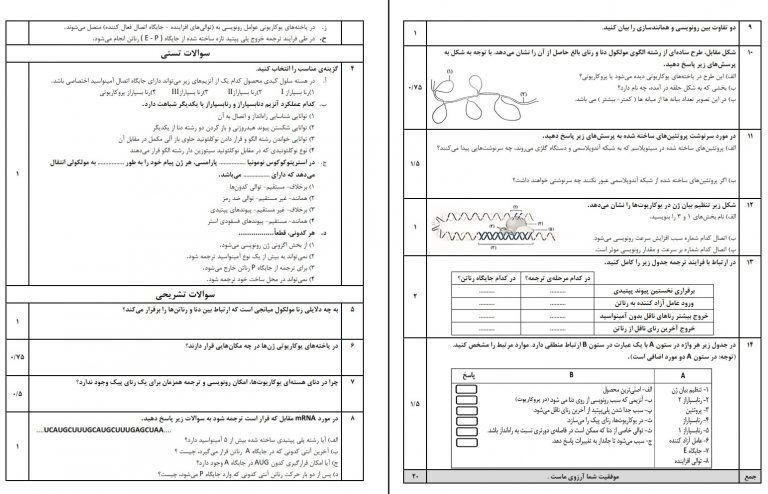 ز. در یاخته‌های یوکاریوتی عوامل رونویسی به (توالی‌های افزاینده - جایگاه اتصال فعال کننده) متصل می‌شوند.
ح. در طی فرایند ترجمه خروج پلی پپتید تازه ساخته شده از جایگاه ( E - P ) رناتن انجام می‌شود.
سوالات تستی
۴ گزینه‌ی مناسب را انتخاب کنید.
أ. در هسته سلول کبدی محصول کدام یک از آنزیم‌های زیر می‌تواند دارای جایگاه اتصال آمینواسید اختصاصی باشد.
۱) رنا بسپاراز I ۲) رنا بسپاراز II ۳) رنا بسپاراز III ۴) رنا بسپاراز پروکاریوتی
ب. کدام عملکرد آنزیم دنابسپاراز و رنابسپاراز با یکدیگر شباهت دارد.
۱) توانایی شناسایی راه‌انداز و اتصال به آن
۲) توانایی شکستن پیوند هیدروژنی و باز کردن دو رشته دنا از یکدیگر
۳) توانایی خواندن رشته الگو و قرار دادن نوکلئوتید حاوی باز آلی مکمل در مقابل آن
۴) نوع نوکلئوتیدی که در مقابل نوکلئوتید سیتوزین دار رشته الگو قرار می‌دهند
ج. در استرپتوکوکوس نومونیا .............. پارامسی، هر ژن پیام خود را به طور .............. به مولکولی انتقال
می‌دهد که دارای .............. می‌باشد.
۱) برخلاف- مستقیم- توالی کدون‌ها
۲) همانند- غیر مستقیم- توالی ضد رمز
۳) برخلاف- غیر مستقیم- پیوندهای پپتیدی
۴) همانند- مستقیم- پیوندهای فسفودی استر
۱
د. هر کدونی، قطعاً..................
۱) از بخش اگزونی ژن رونویسی می‌شود.
۲) نمی‌تواند به بیش از یک نوع آمینواسید ترجمه شود.
۳) برای ترجمه از جایگاه P رناتن خارج می‌شود.
۴) نمی‌تواند در محل ساخت خود ترجمه شود.
سوالات تشریحی
۵ به چه دلایلی رنا مولکول میانجی است که ارتباط بین دنا و رناتن‌ها را برقرار می‌کند؟
۱
۶ در یاخته‌های یوکاریوتی ژن‌ها در چه مکان‌هایی قرار دارند؟
۰/۷۵
۷ چرا در دنای هسته‌ای یوکاریوت‌ها، امکان رونویسی و ترجمه همزمان برای یک رنای پیک وجود ندارد؟
۰/۵
۸ در مورد mRNA مقابل که قرار است ترجمه شود به سوالات زیر پاسخ دهید.
....UCAUGCUUUGCAUGCUUUGAGCUAA....
الف) آیا رشته پلی پپتیدی ساخته شده بیش از ۵ آمینواسید دارد؟
ب) آخرین آنتی کدونی که در جایگاه A رناتن قرار می‌گیرد، چیست؟
۱
ج) آیا امکان قرارگیری کدون AUG در جایگاه A وجود دارد؟
د) پس از دو بار حرکت رناتن آنتی کدونی که وارد جایگاه P می‌شود، چیست؟
۹ دو تفاوت بین رونویسی و همانندسازی را بیان کنید.
۱
۱۰ شکل مقابل، طرح ساده‌ای از رشته الگوی مولکول دنا و رنای بالغ حاصل از آن را نشان می‌دهد. با توجه به شکل به
پرسش‌های زیر پاسخ دهید.
الف) این طرح در یاخته‌های یوکاریوتی دیده می‌شود یا پروکاریوتی؟
ب) بخشی که به شکل حلقه در آمده، چه نام دارد؟
پ) در این تصویر تعداد بیانه ها از میانه ها ( کمتر- بیشتر ) می باشد.
(۱)
(۲)
۰/۷۵
۱۱ در مورد سرنوشت پروتئین‌های ساخته شده به پرسش‌های زیر پاسخ دهید.
الف) پروتئین‌های ساخته شده در سیتوپلاسم که به شبکه آندوپلاسمی و دستگاه گلژی می‌روند، چه سرنوشت‌هایی پیدا می‌کنند؟
۱/۵
ب) اگر پروتئین‌های ساخته شده از شبکه آندوپلاسمی عبور نکنند چه سرنوشتی خواهند داشت؟
۱۲ شکل زیر تنظیم بیان ژن در یوکاریوت‌ها را نشان می‌دهد.
الف) نام بخش‌های ۱ و ۳ را بنویسید.
ب) اتصال کدام شماره سبب افزایش سرعت رونویسی می‌شود.
پ) اتصال کدام شماره بر سرعت و مقدار رونویسی موثر است.
۱
۱۳ در ارتباط با فرایند ترجمه جدول زیر را کامل کنید.
در کدام مرحله‌ی ترجمه؟ در کدام جایگاه رناتن؟
برقراری نخستین پیوند پپتیدی .......... ..........
ورود عامل آزاد کننده به رناتن .......... ..........
خروج بیشتر رناهای ناقل بدون آمینواسید .......... ..........
خروج آخرین رنای ناقل از رناتن .......... ..........
۲
۱۴ در جدول زیر هر واژه در ستون A با یک عبارت در ستون B ارتباط منطقی دارد. موارد مرتبط را مشخص کنید.
(توجه: در ستون A دو مورد اضافی است).
A B پاسخ
۱- تنظیم بیان ژن الف- اصلی‌ترین محصول
۲- رنابسپاراز ۲ ب- آنزیمی که سبب رونویسی از روی دنا می شود (در پروکاریوت)
۳- پروتئین پ- سبب جدا شدن پلی‌پپتید از آخرین رنای ناقل می‌شود.
۴- رنابسپاراز ت- در یوکاریوت‌ها، رنای پیک را می‌سازد.
۵- رنابسپاراز ۱ ث- توالی خاصی از دنا که ممکن است در فاصله‌ی دورتری نسبت به راه‌انداز باشد.
۶- عامل آزاد کننده ج- سبب می‌شود تا جاندار به تغییرات پاسخ دهد.
۷- جایگاه E
۸- توالی افزاینده
۱/۵
جمع موفقیت شما آرزوی ماست . ۲۰